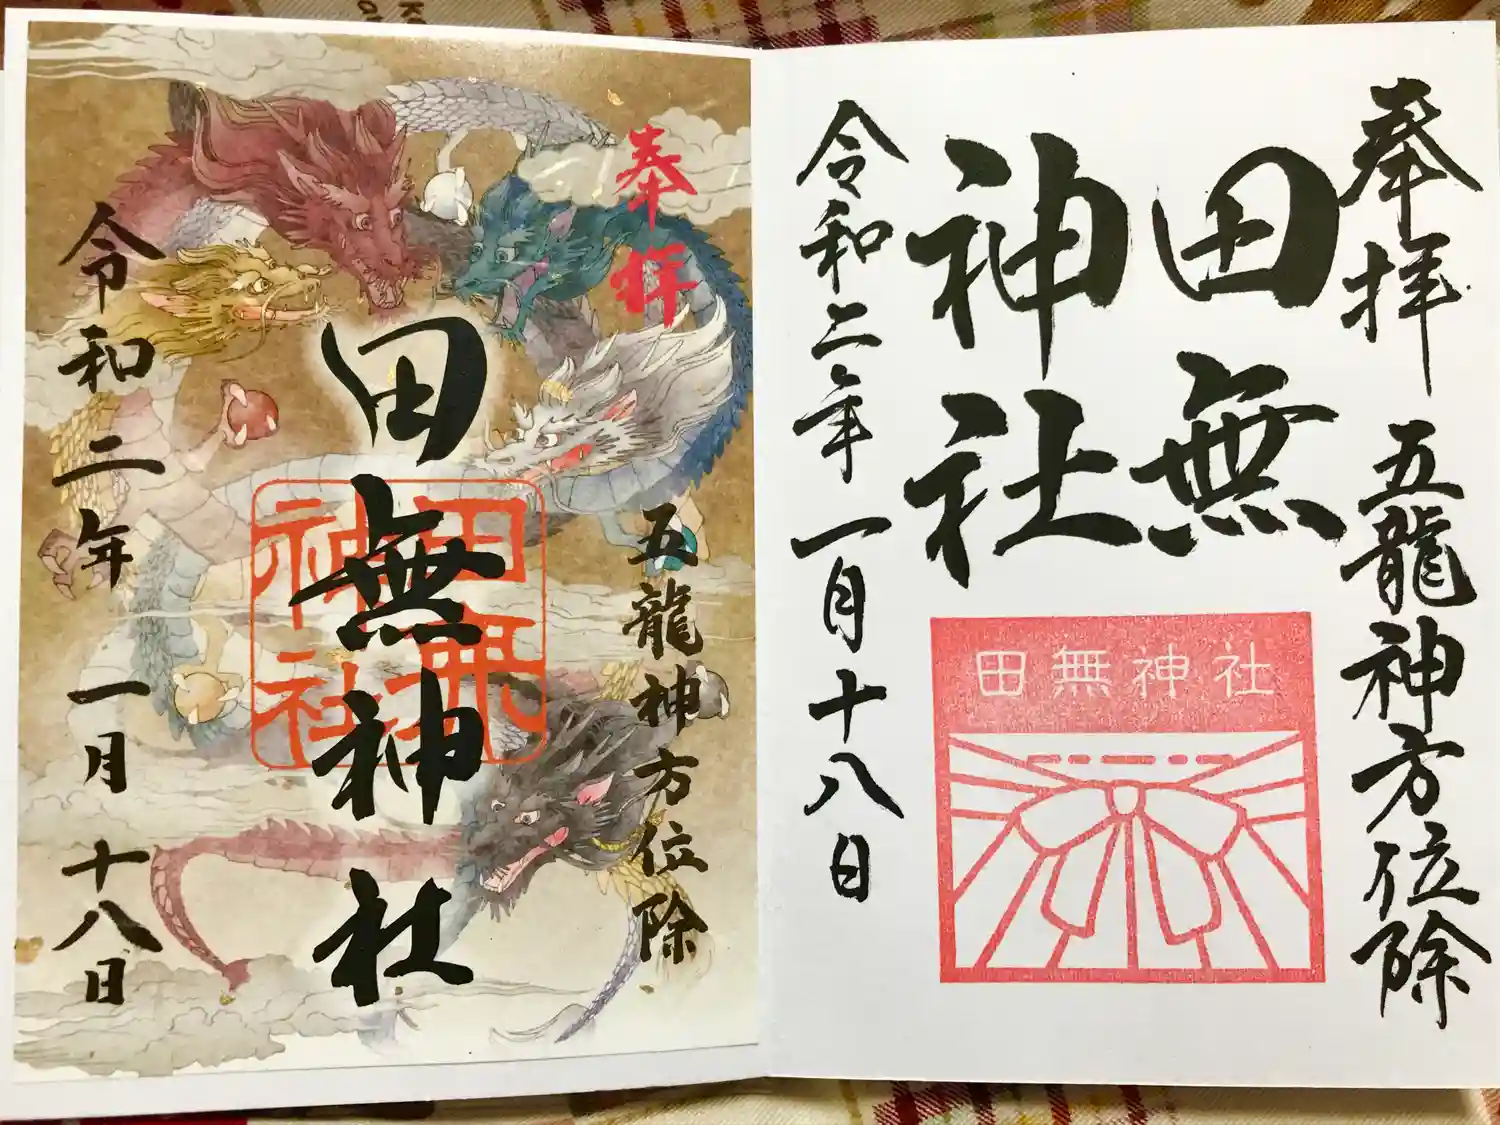 奉拝
五龍神方位除
田無
神社
令和二年一月十八日
田無神社
奉拝
五龍神方位除
田無神社
田無
神社
令和二年一月十八日